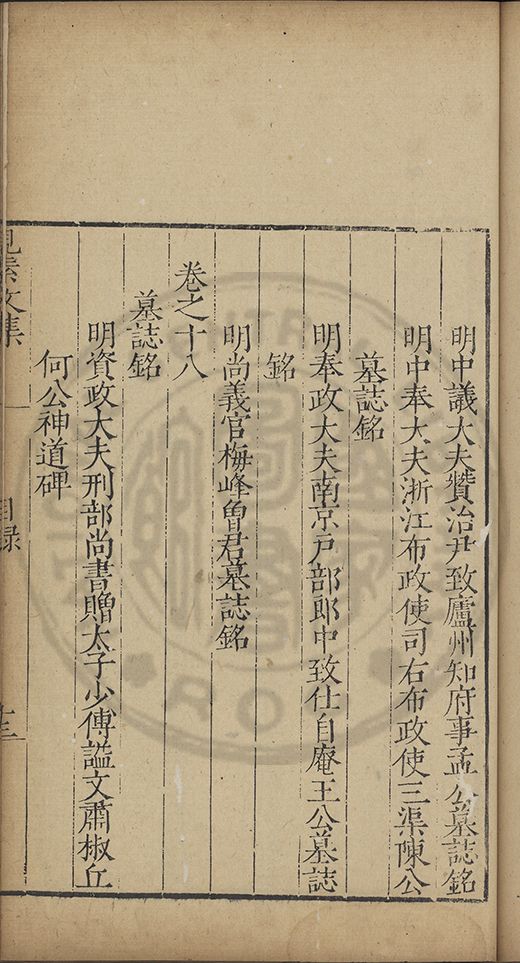 明中議大夫贊治尹致廬州知府事孟公墓誌銘
明中奉大夫浙江布政使司右布政使三渠陳公
墓誌銘
明奉政大夫南京戶部郎中致仕自庵王公墓誌
銘
明尚義官梅峰曾君墓誌銘
卷之十八
墓誌銘
明資政大夫刑部尚書贈太子少傅謚文肅椒丘
何公神道碑
見素文集
目録